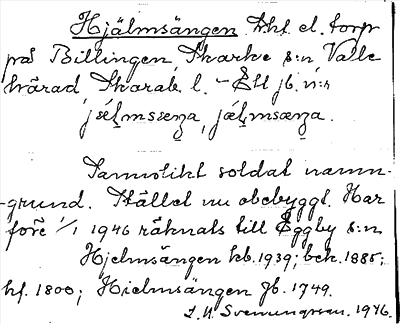 Hjälmsängen t.hf. el. torp
på Billingen, Skarke s:n Valle
härad Skarab. l. – Ett jb. n:r
jɛ́l̥msseŋa, jɛ́l̥msæŋa.
Sannolikt soldatnamn-
-grund. Stället nu obebyggt. Har
före 1/1 1946 räknats till Eggby s:n
Hjelmsängen kb. 1939; bek. 1885;
hf. 1800; Hielmsängen Jb. 1749.
1946.